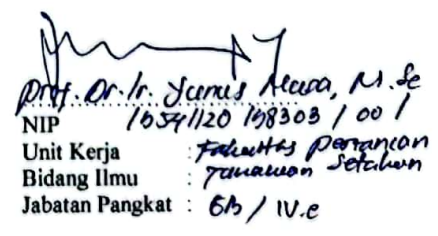 Prof. Dr. Ir. Yunus Musa, M.Sc
NIP 19541120 198303 1 001
Unit Kerja : Fakultas Pertanian
Bidang Ilmu : Tanaman Setahun
Jabatan Pangkat : GB / IV.e